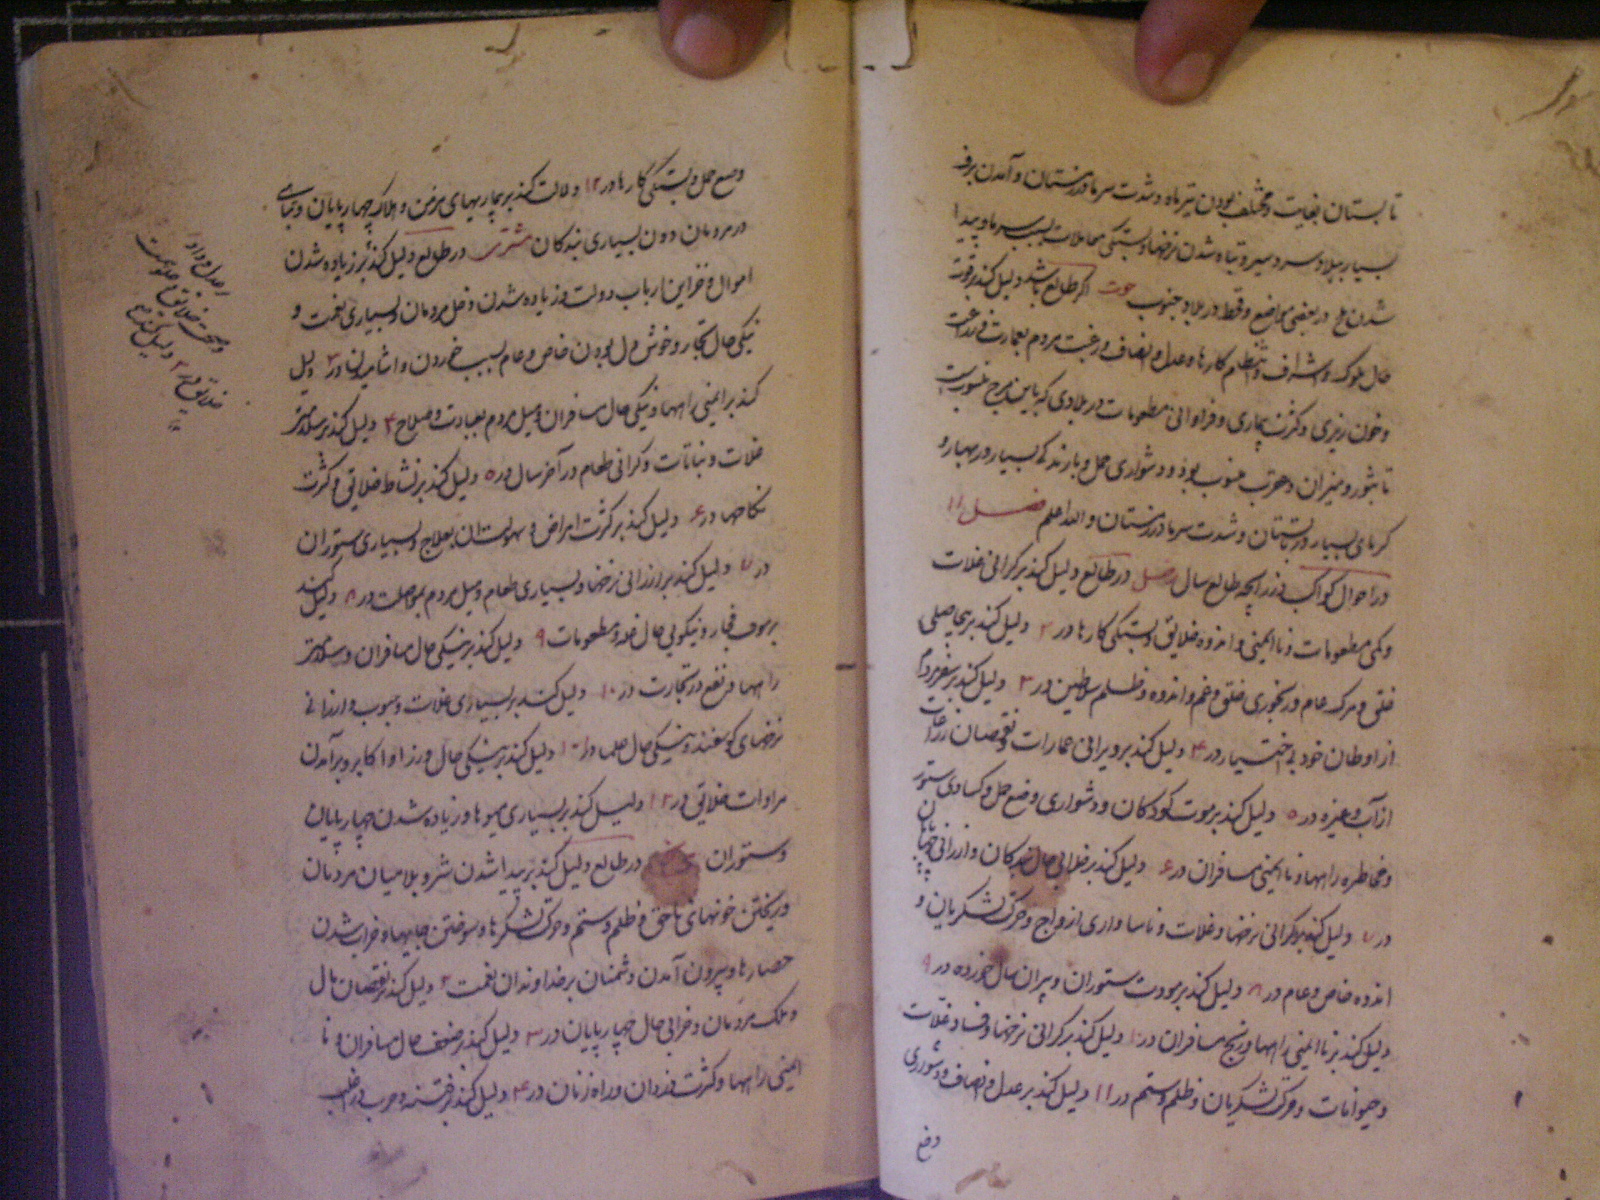 تابستان بغایت و مختلف بودن تیر ماه و شدت سرما در زمستان و آمدن برف
بسیار ببلاد سردسیر و تباه شدن نرخها و بستگی معاملات بسبب سرما و پیدا
شدن ملخ در بعضی مواضع و قحط در بلاد جنوب حوت اگر طالع باشد دلیل کند بر قوت
حال ملوک و اشراف و انتظام کارها و عدل و انصاف و رغبت مردم بعمارت و زراعت
و خون ریزی و کثرت بیماری و فراوانی مطعومات در بلادی که باین برج منسوبست
تا بثور و میزان و عقرب منسوب بود و دشواری حمل و بارندگی بسیار در بهار و
گرمای بسیار در تابستان و شدت سرما در زمستان و الله اعلم فصل ۱۱
در احوال کواکب در زایچه طالع سال زحل در طالع دلیل کند بر گرانی غلات
و کمی مطعومات و نا ایمنی و اندوه خلایق و بستگی کارها و در ۲ دلیل کند بر بیحاصلی
خلق و مرگ عام و رنجوری خلق و غم و اندوه و ظلم سلاطین در ۳ دلیل کند بر سفر مردم
از اوطان خود بی اختیار در ۴ دلیل کند بر ویرانی عمارات و نقصان زراعات
از آب و غیره در ۵ دلیل کند بر موت کودکان و دشواری وضع حمل و کسادی ستور
و مخاطره راهها و نا ایمنی مسافران در ۶ دلیل کند بر خلابی حال بندگان و ارزانی چهارپایان
در ۷ دلیل کند بر گرانی نرخها و غلات و ناسازواری ازواج و حرکت لشکریان و
اندوه خاص و عام در ۸ دلیل کند بر موت ستوران و پیران سال خورده در ۹
دلیل کند بر نا ایمنی راهها و رنج مسافران در ۱۰ دلیل کند بر گرانی نرخها و فساد غلات
و حیوانات و حرکت لشکریان و ظلم و ستم در ۱۱ دلیل کند بر عدل و انصاف و دشواری
وضع
وضع حمل و بستگی کارها در ۱۲ دلالت کند بر بیماریهای مزمن و هلاک چهارپایان و تباهی
در مردمان دون بسیاری بندگان مشتری در طالع دلیل کند بر زیاده شدن
اموال و خزاین ارباب دولت و زیاده شدن دخل مردمان و بسیاری نعمت و
نیکی حال تجار و خوش دل بودن خاص و عام بسبب خوردن و اشامیدن در ۳ دلیل
کند بر ایمنی راهها و نیکی حال مسافران و میل مردم بعبادت و صلاح ۴ دلیل کند بر سلامتی
غلات و نباتات و گرانی طعام در آخر سال در ۵ دلیل کند بر نشاط خلایق و کثرت
نکاحها در ۶ دلیل کند بر کثرت امراض و سهولت آن بعلاج و بسیاری ستوران
در ۷ دلیل کند بر ارزانی نرخها و بسیاری طعام و میل مردم بمواصلت در ۸ دلیل کند
بر موت فجار و نیکویی حال غله و مطعومات ۹ دلیل کند بر نیکی حال مسافران و سلامتی
راهها و نفع در تجارت در ۱۰ دلیل کند بر بسیاری غلات و حبوب و ارزانی
نرخهای گوسفند و نیکی حال علما در ۱۱ دلیل کند بر نیکی حال وزرا و اکابر و برآمدن
مرادات خلایق در ۱۲ دلیل کند بر بسیاری میوها و زیاده شدن چهارپایان
و ستوران در طالع دلیل کند بر پیدا شدن شر و بلا میان مردمان
و ریختن خونهای ناحق و ظلم و ستم و حرکت لشکرها و سوختن جایها و خراب شدن
حصارها و بیرون آمدن دشمنان بر خداوندان نعمت ۲ دلیل کند بر نقصان مال
و ملک مردمان و خرابی حال چهارپایان در ۳ دلیل کند بر ضعف حال مسافران و نا
ایمنی راهها و کثرت دزدان و راه زنان در ۴ دلیل کند بر فتنه و حرب در اغلب
و صحت خلایق
خلایق در ۲ دلیل کند